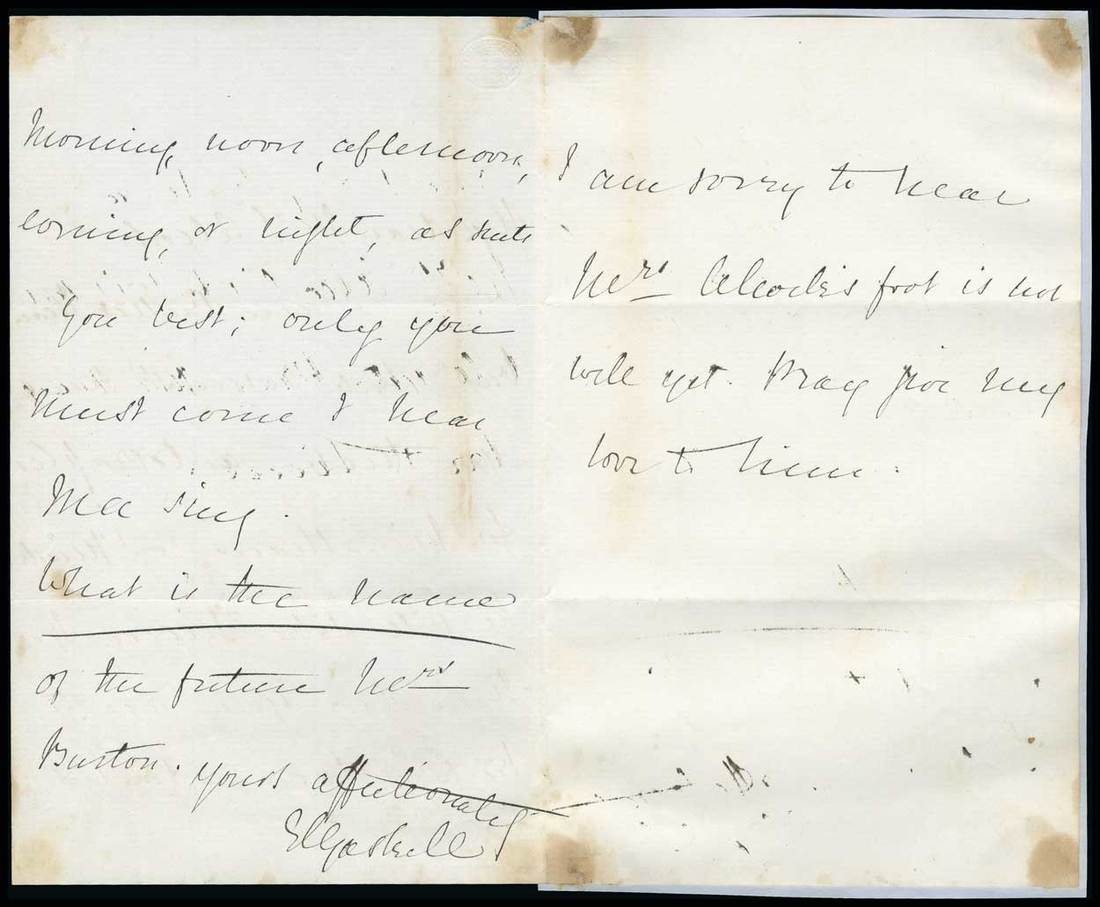 Morning, noon, afternoon,
evening, or night, as suits
you best; only you
must come & hear
Meta sing.
What is the name
of the future Mrs
Burton. Yours affectionately
E C Gaskell
I am sorry to hear
Mr Alcock's foot is not
well yet. Pray give my
love to him.